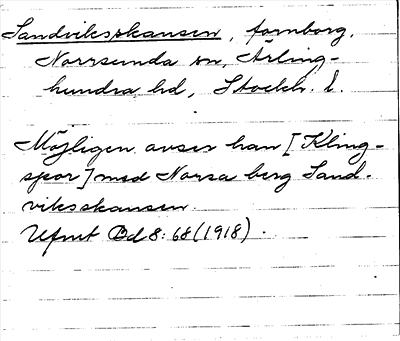 Sandviksskansen, fornborg,
Norrsunda sn, Ärling-
hundra hd, Stockh. l.
Möjligen avser han [Kling-
spor] med Norsa berg Sand-
viksskansen.
Ufmt Bd 8: 68 (1918).